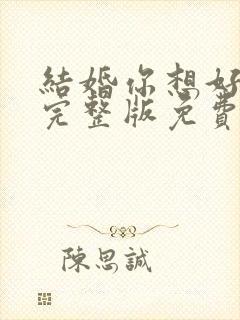 結婚你想好
完整版免費
陳思誠